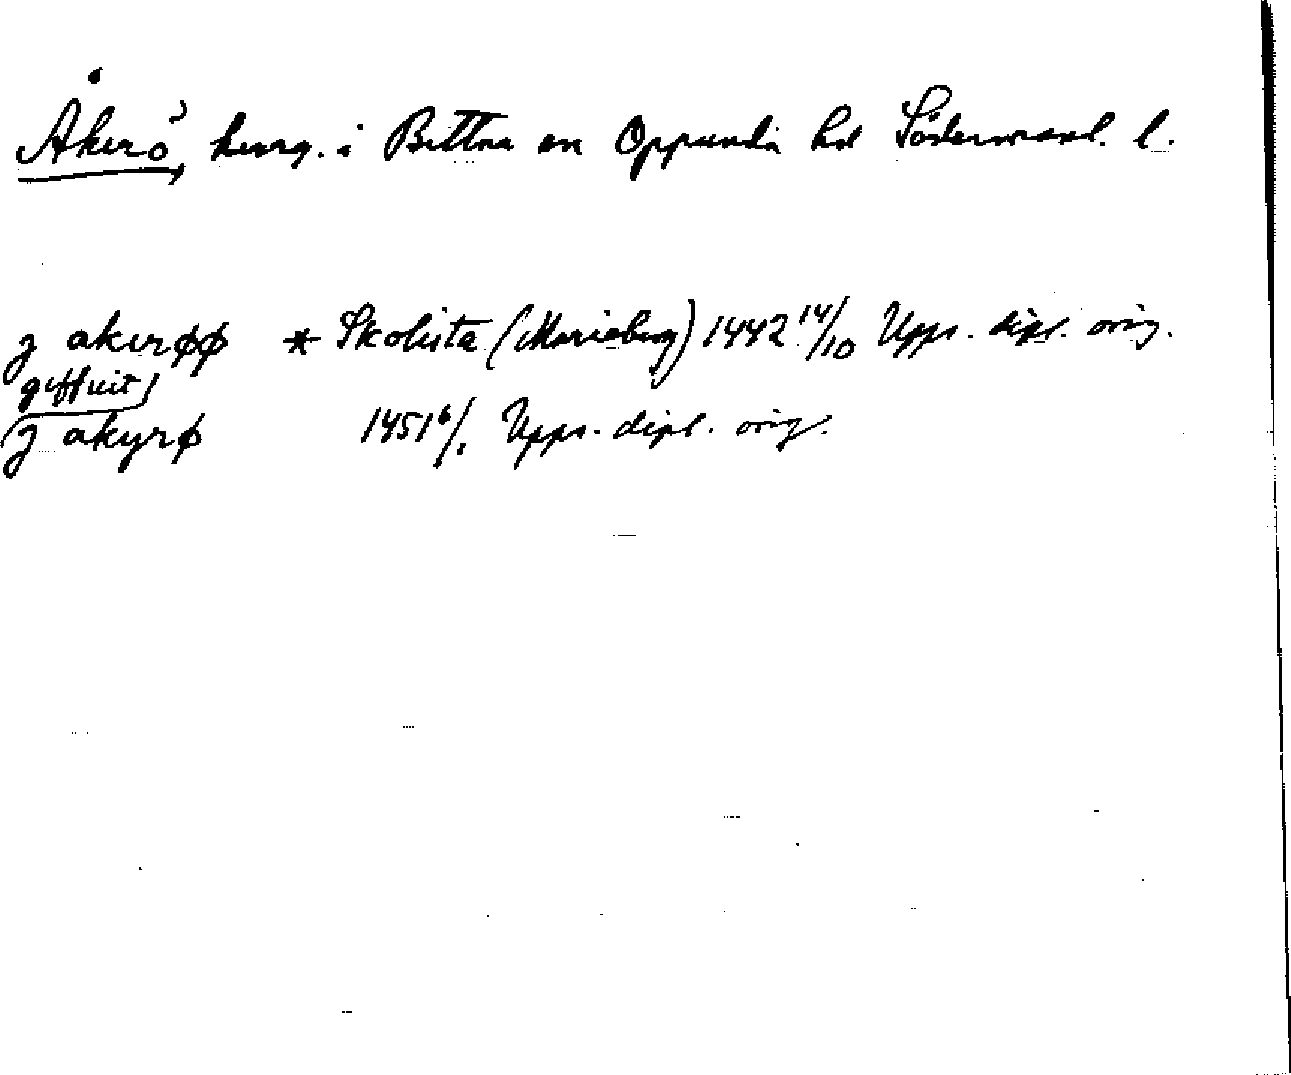 Åkerö, herrg. i Bettna sn Oppunda hd Södermanl. l.
j akerøø * Skolista (Marieberg) 1442 14/10 Upps. dipl. orig.
giffuit
j akyrø 1451 6/1 Upps. dipl. orig.